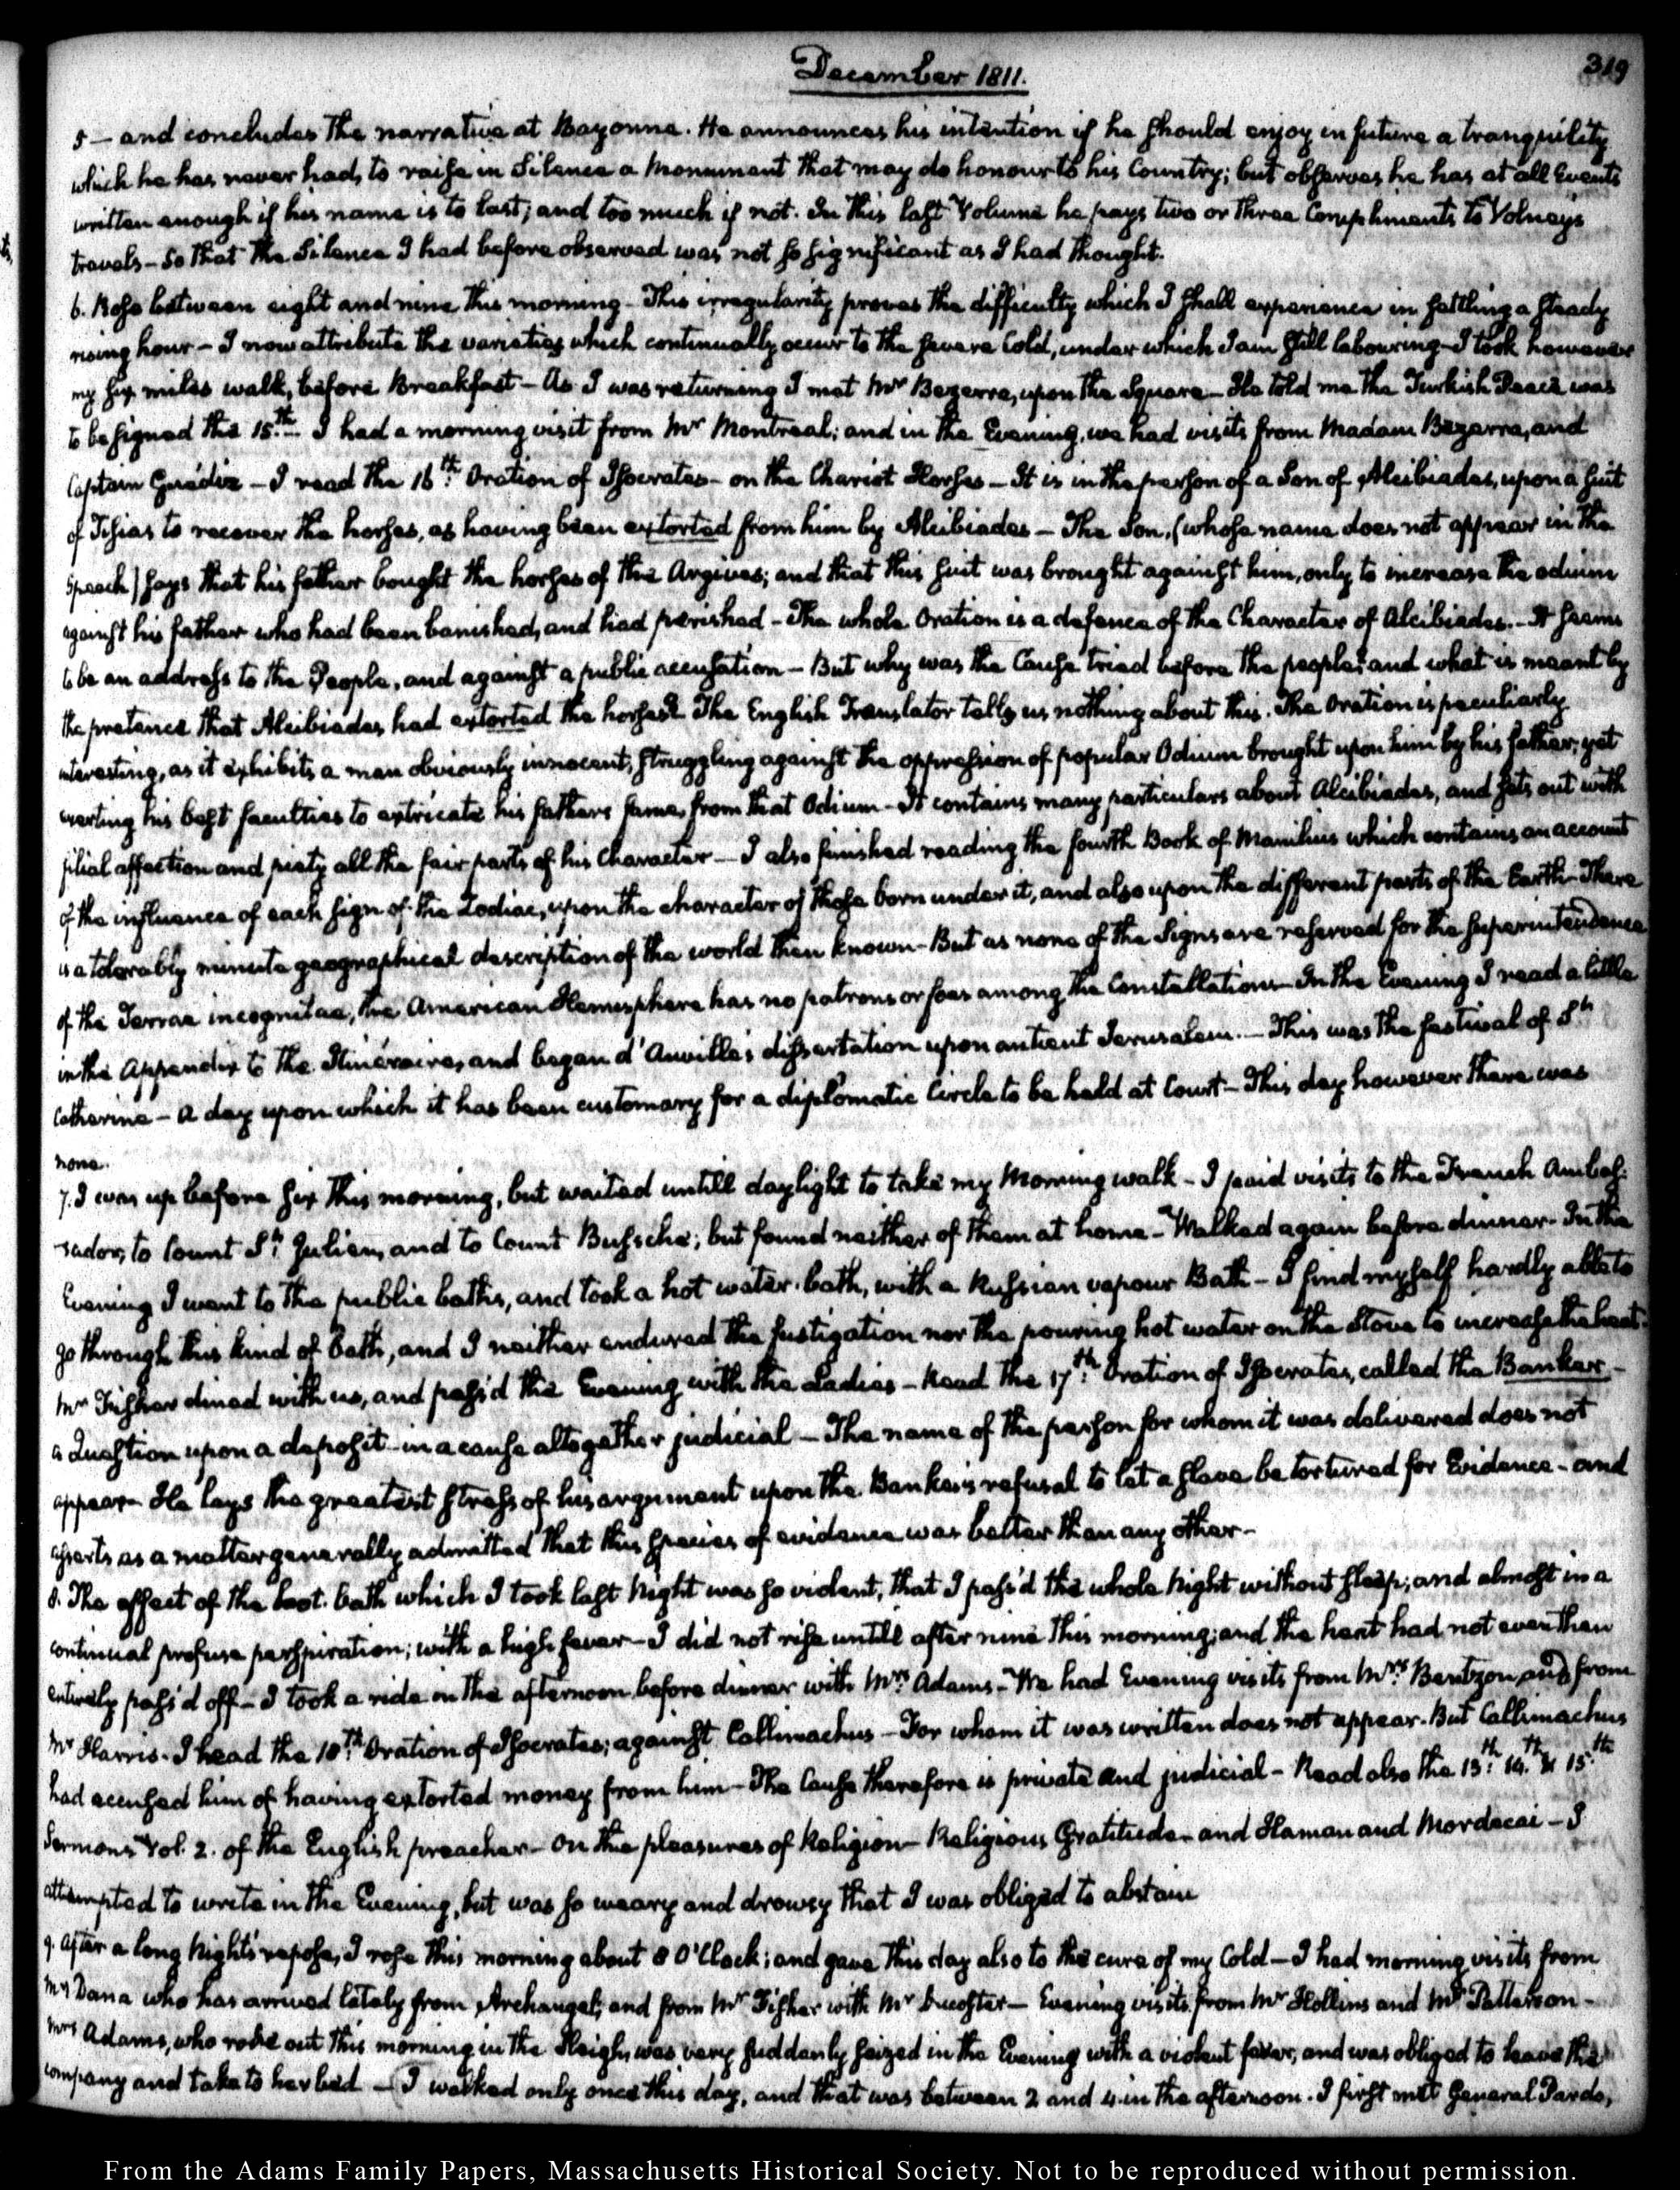 December 1811.
319
5 — and concludes the narrative at Bayonne. He announces his intention if he should enjoy in future a tranquility
which he has never had, to raise in Silence a Monument that may do honour to his Country; but observes he has at all Events
written enough if his name is to last; and too much if not. In this last Volume he pays two or three Compliments to Volney's
travels – So that the Silence I had before observed was not so significant as I had thought.
6. Rose between eight and nine this morning – This irregularity proves the difficulty which I shall experience in settling a steady
rising hour – I now attribute the varieties which continually occur to the severe Cold, under which I am still labouring – I took however
my six miles walk, before Breakfast – As I was returning I met Mr Bezerra, upon the Square – He told me the Turkish Peace was
to be signed the 15th. I had a morning visit from Mr Montreal; and in the Evening, we had visits from Madam Bezerra, and
Captain Guédin – I read the 16th Oration of Isocrates – on the Chariot Horses – It is in the person of a Son of Alcibiades, upon a suit
of Tisias to recover the horses, as having been extorted from him by Alcibiades – The Son, (whose name does not appear in the
Speech) says that his father bought the horses of the Argives; and that this suit was brought against him, only to increase the odium
against his father who had been banished, and had perished – The whole Oration is a defence of the Character of Alcibiades. – It seems
to be an address to the People, and against a public accusation – But why was the Cause tried before the people? and what is meant by
the pretence that Alcibiades had extorted the horses? The English Translator tells us nothing about this. The Oration is peculiarly
interesting, as it exhibits a man obviously innocent, struggling against the oppression of popular Odium brought upon him by his father; yet
exerting his best faculties to extricate his fathers fame, from that Odium – It contains many particulars about Alcibiades, and sets out with
filial affection and piety all the fair parts of his Character — I also finished reading the fourth Book of Manilius which contains an account
of the influence of each sign of the Zodiac, upon the character of those born under it, and also upon the different parts of the Earth – There
is a tolerably minute geographical description of the world then known – But as none of the Signs are reserved for the superintendence
of the Terrae incognitae, the American Hemisphere has no patrons or foes among the Constellations – In the Evening I read a little
in the Appendix to the Itinéraire, and began d'Anville's dissertation upon antient Jerusalem. – This was the festival of St.
Catherine – A day upon which it has been customary for a diplomatic Circle to be held at Court – This day however there was
none.
7. I was up before six this morning, but waited untill daylight to take my Morning walk – I paid visits to the French Ambas-
sador, to Count St. Julien, and to Count Bussche; but found neither of them at home – Walked again before dinner – In the
Evening I went to the public baths, and took a hot water bath, with a Russian vapour Bath – I find myself hardly able to
go through this kind of bath, and I neither endured the fustigation nor the pouring hot water on the stove to increase the heat.
Mr Fisher dined with us, and pass'd the Evening with the Ladies – Read the 17th Oration of Isocrates, called the Banker –
a Question upon a deposit – in a cause altogether judicial – The name of the person for whom it was delivered does not
appear – He lays the greatest stress of his argument upon the Banker's refusal to let a slave be tortured for Evidence – and
asserts as a matter generally admitted that this species of evidence was better than any other –
8. The effect of the hot bath which I took last Night was so violent, that I pass'd the whole Night without sleep; and almost in a
continual profuse perspiration; with a high fever – I did not rise untill after nine this morning; and the heat had not even then
entirely pass'd off – I took a ride in the afternoon before dinner with Mrs Adams – We had Evening visits from Mrs Bentzon and from
Mr Harris. I read the 18th Oration of Isocrates; against Callimachus – For whom it was written does not appear. But Callimachus
had accused him of having extorted money from him – The Cause therefore is private and judicial – Read also the 13th 14th & 15th
Sermons Vol. 2. of the English preacher – On the pleasures of Religion – Religious Gratitude – and Haman and Mordecai – I
attempted to write in the Evening, but was so weary and drowsy that I was obliged to abstain
9. After a long Night's repose, I rose this morning about 8 O'Clock; and gave this day also to the cure of my Cold – I had morning visits from
Mr Dana who has arrived lately from Archangel; and from Mr Fisher with Mr – Evening visits from Mr Hollins and Mr Patterson –
Mrs Adams, who rode out this morning in the Sleigh, was very suddenly seized in the Evening with a violent fever, and was obliged to leave the
company and take to her bed – I walked only once this day, and that was between 2 and 4 in the afternoon. I first met General Pardo,
From the Adams Family Papers, Massachusetts Historical Society. Not to be reproduced without permission.